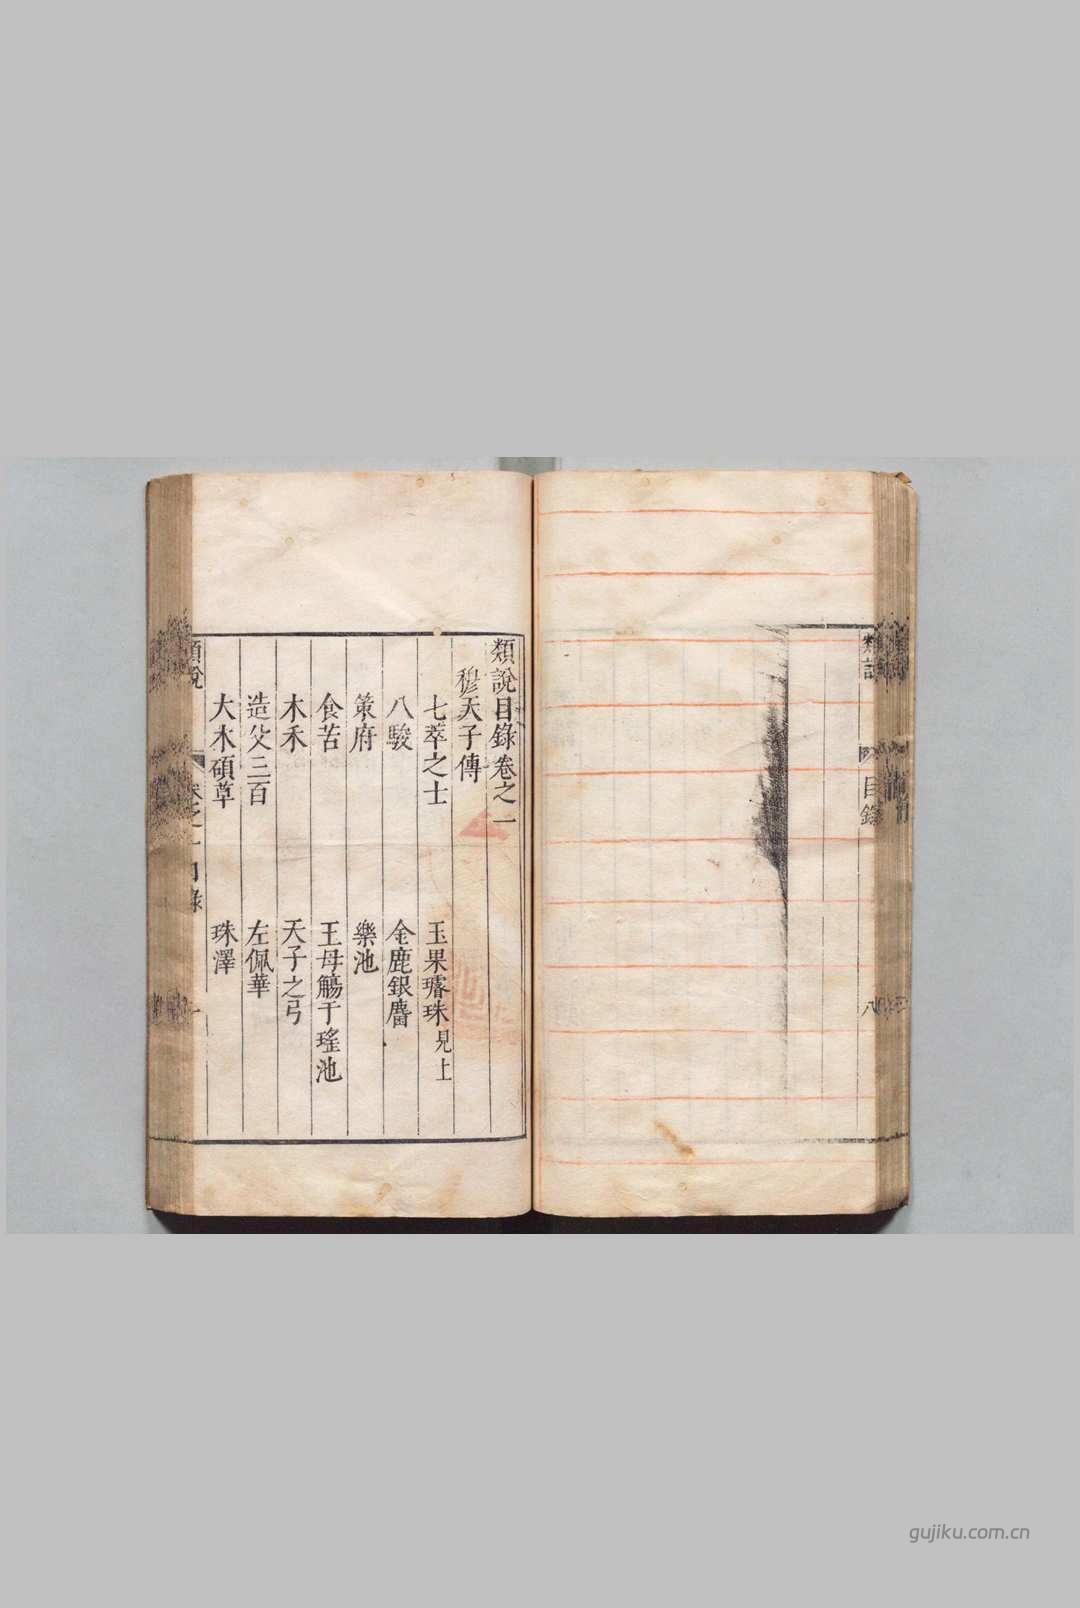 類說
目錄
八
類說目錄卷之一
穆天子傳
七萃之士　玉果璿珠見上
八駿　金鹿銀麕
策府　樂池
食苦　王母觴于瑤池
木禾　天子之弓
造父三百　左佩華
大木碩草　珠澤
類說
卷之一目錄
一
gujiku.com.cn